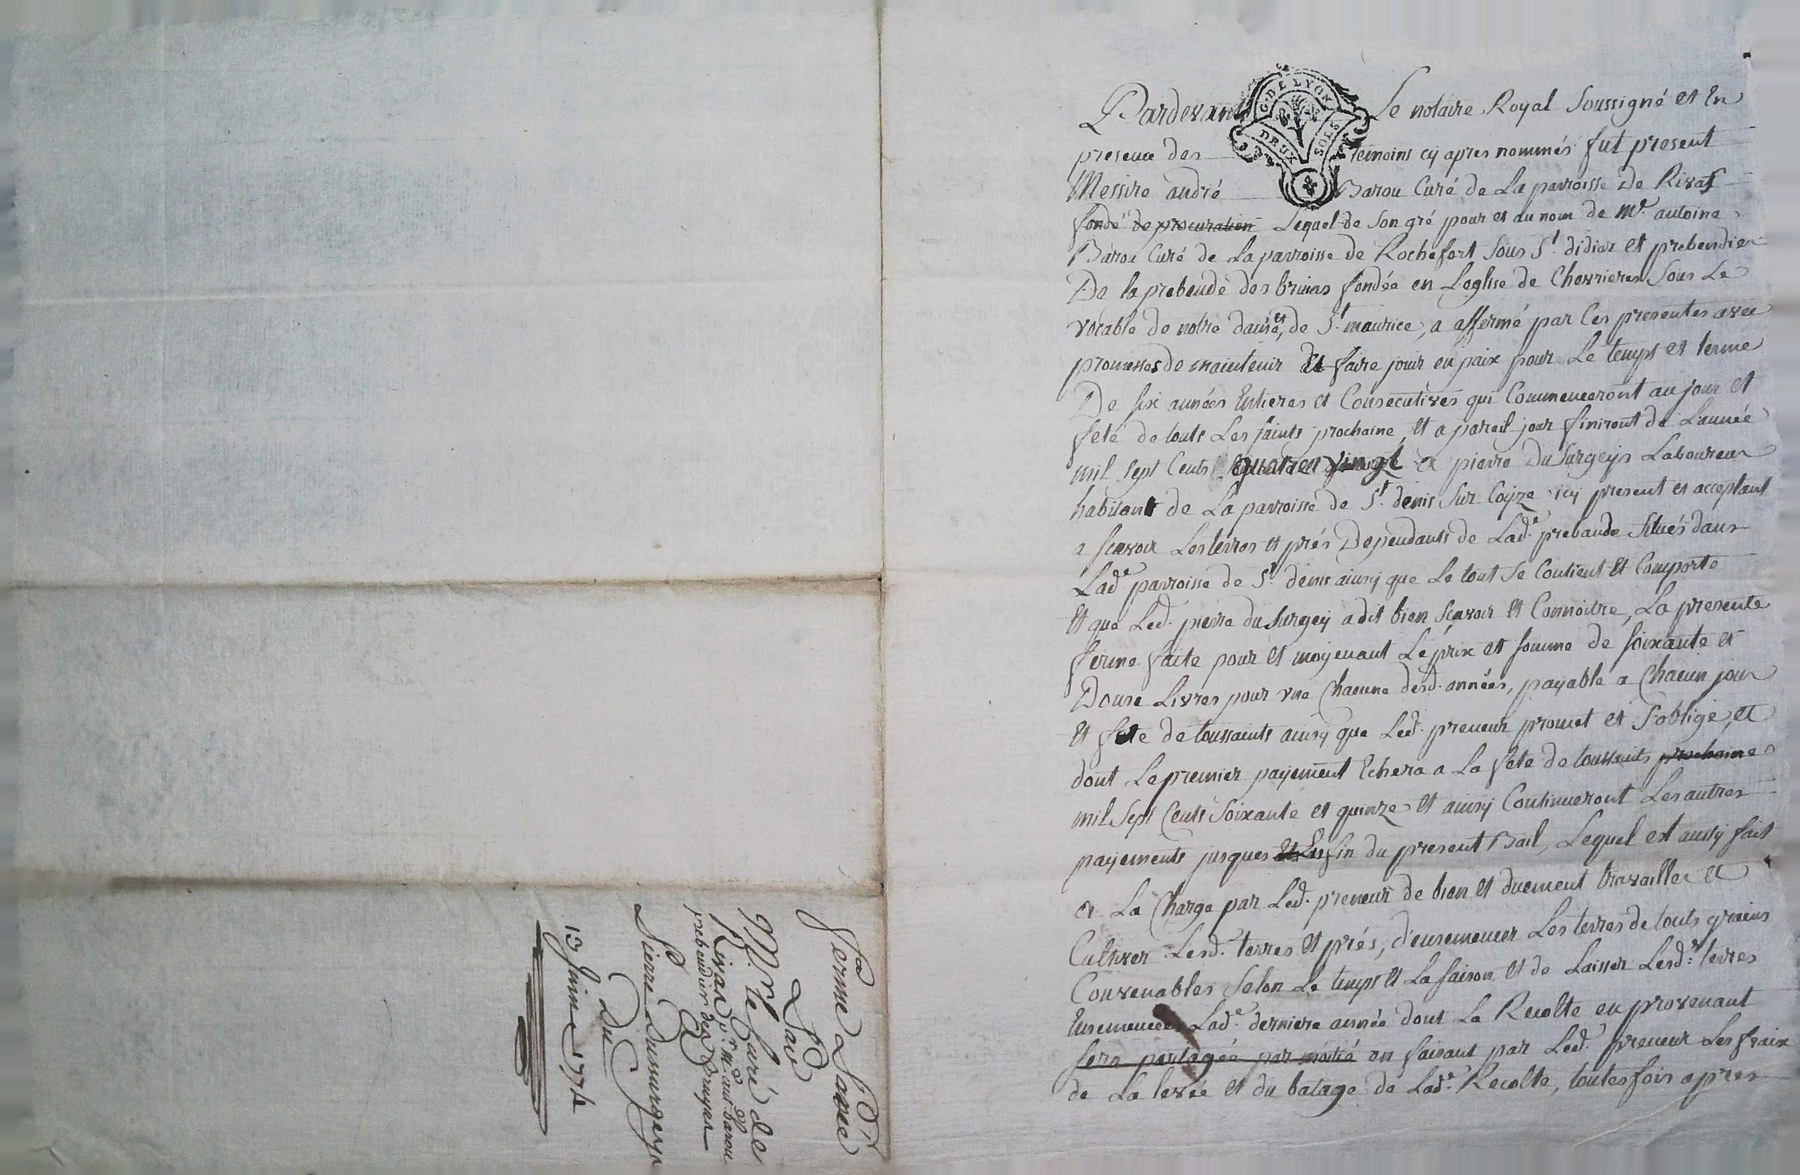 Pardevant Le notaire Royal Soussigné et En
G. DE LYON
DEUX SOLS
presence des temoins cy apres nommés fut present
Messire andré Barou Curé de La parroisse de Rivas
fondé de procuration Lequel de Son gré pour et au nom de Mr. antoine
Barou Curé de La parroisse de Rochefort Sous St. didier et prebendier
De la prebende des bruias fondée en Leglise de Chevrieres Sous Le
vocable de notre dame, et de St. maurice, a affermé par Ces presentes avec
promesses de maintenir et faire jouir en paix pour Le temps et terme
De six années Entieres et Consecutives qui Commenceront au jour et
fete de touts Les saints prochaine, et a pareil jour finiront de L'année
mil Sept Cents quatre vingt a pierre Du Surgeys Laboureur
habitant de La parroisse de St. denis Sur Coyze icy present et acceptant
a scavoir Les terres et prés Dependants de Lade. prebande Situés dans
Lade. parroisse de St. denis ainsy que Le tout Se Contient et Comporte
et que Led. pierre du Surgey a dit bien scavoir et Connoitre, La presente
ferme faite pour et moyenant Le prix et somme de soixante et
Douse Livres pour vne Chacune desd. années, payable a Chacun jour
et fete de toussaints ainsy que Led. preneur promet et S'oblige, et
dont Le premier payement Echera a La fete de toussaints prochaine
mil Sept Cents Soixante et quinze et ainsy Continueront Les autres
payements jusques fin du present Bail, Lequel est aussy fait
a La Charge par Led. preneur de bien et duement travailler et
Cultiver Lesd. terres et prés, d'ensemencer Les terres de touts grains
Convenables Selon Le temps et La saison et de Laisser Lesd. terres
Ensemencées Lade. derniere année dont La Recolte en provenant
sera partagée par moitié en faisant par Led. preneur Les fraix
de La levée et du batage de Lade. Recolte, toutes fois apres
ferme Passée
Par
Mr. le Curé de
Rivas pr. mr. ant. barou
prebandier des Bruyas
A
Pierre Dusurgeys
Du
13 Juin 1774